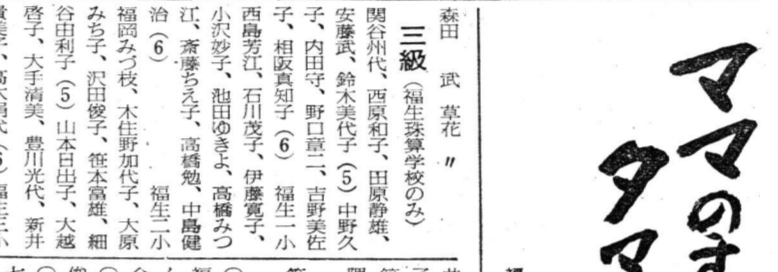 ママのす
タマ
森田　武　草花　〃
三級（福生珠算学校のみ）
関谷州代、西原和子、田原静雄、
安藤武、鈴木美代子（5）中野久
子、内田守、野口章二、吉野美佐
子、相阪真知子（6）　福生一小
西島芳江、石川茂子、伊藤寛子、
小沢妙子、池田ゆきよ、高橋みつ
江、斎藤ちえ子、高橋勉、中島健
治（6）　福生二小
福岡みづ枝、木住野加代子、大原
みち子、沢田俊子、笹本富雄、細
谷田利子（5）山本日出子、大越
啓子、大手清美、豊川光代、新井